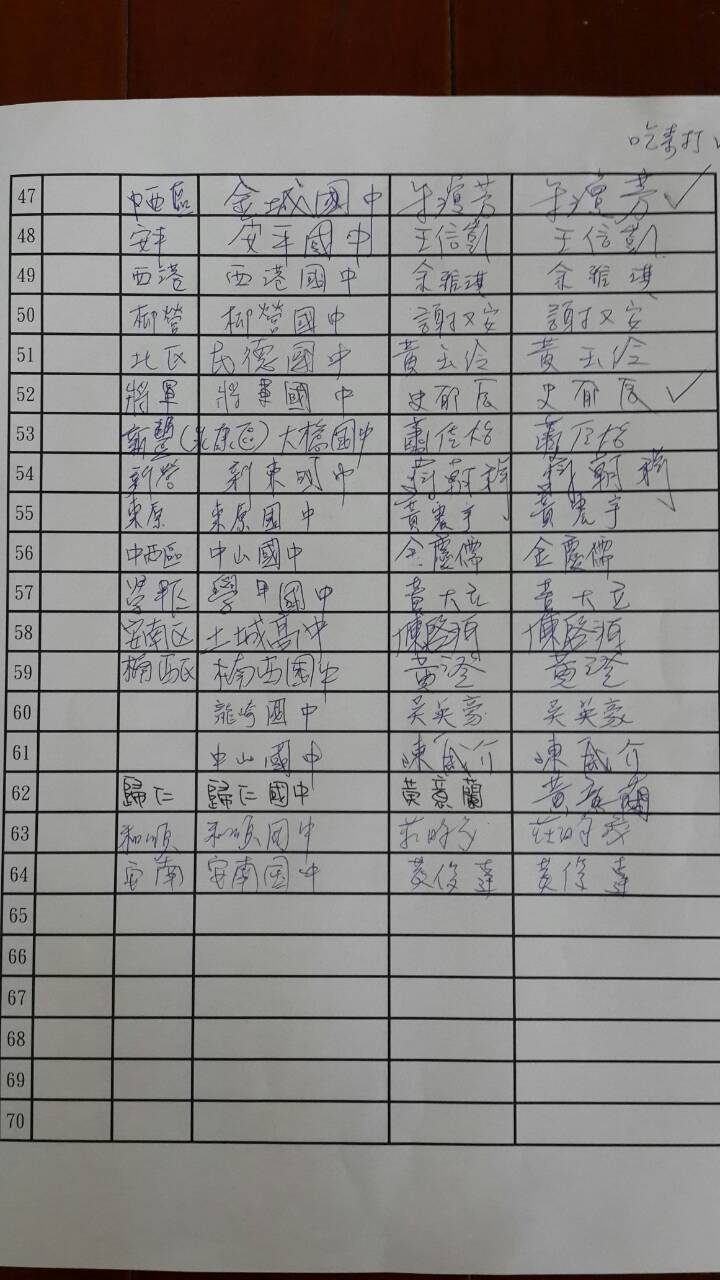 吃素打✓
47 中西區 金城國中 ✓
48 安平 安平國中 王信凱 王信凱
49 西港 西港國中 余雅琪 余雅琪
50 柳營 柳營國中 謝又安 謝又安
51 北區 民德國中 黃玉伶 黃玉伶
52 將軍 將軍國中 史郁辰 史郁辰 ✓
53 (永康區) 大橋國中
54 新營 新東國中
55 東原 東原國中 黃農宇 黃農宇
56 中西區 中山國中 金慶儒 金慶儒
57 學甲區 學甲國中 黃大立 黃大立
58 安南区 土城高中
59 楠西区 楠西国中 黃澄 黃澄
60 龍崎國中 吳英豪 吳英豪
61 中山國中 陳威介 陳威介
62 歸仁 歸仁國中 黃意蘭 黃意蘭
63 和順 和順国中
64 安南 安南国中 黃俊達 黃俊達
65
66
67
68
69
70